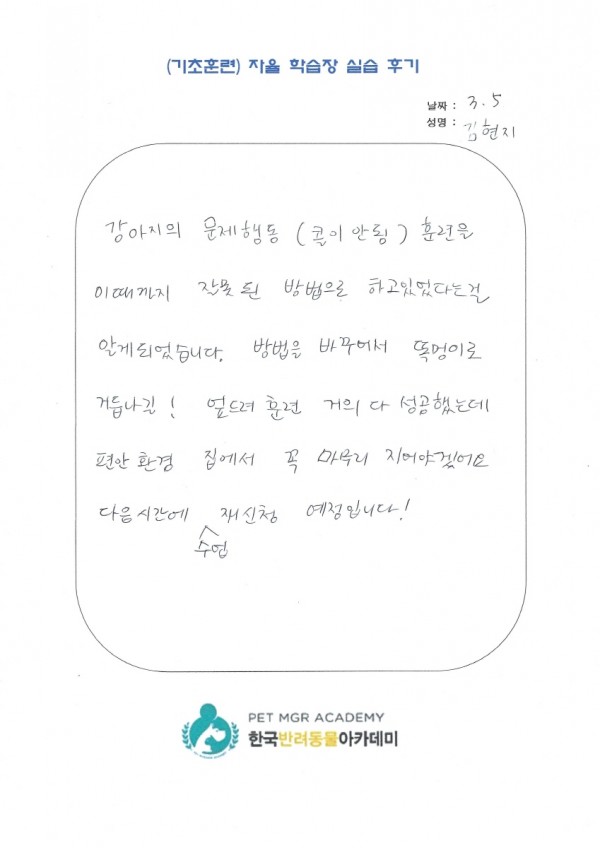 (기초훈련) 자율 학습장 실습 후기
날짜 : 3.5
성명 : 김현지
강아지의 문제행동 (콜이 안됨) 훈련을
이때까지 잘못된 방법으로 하고있었다는걸
알게되었습니다. 방법을 바꾸어서 똑멍이로
거듭나길! 엎드려 훈련 거의 다 성공했는데
편안 환경 집에서 꼭 마무리 지어야겠어요
다음시간에 수업 재신청 예정입니다!
PET MGR ACADEMY
한국반려동물아카데미